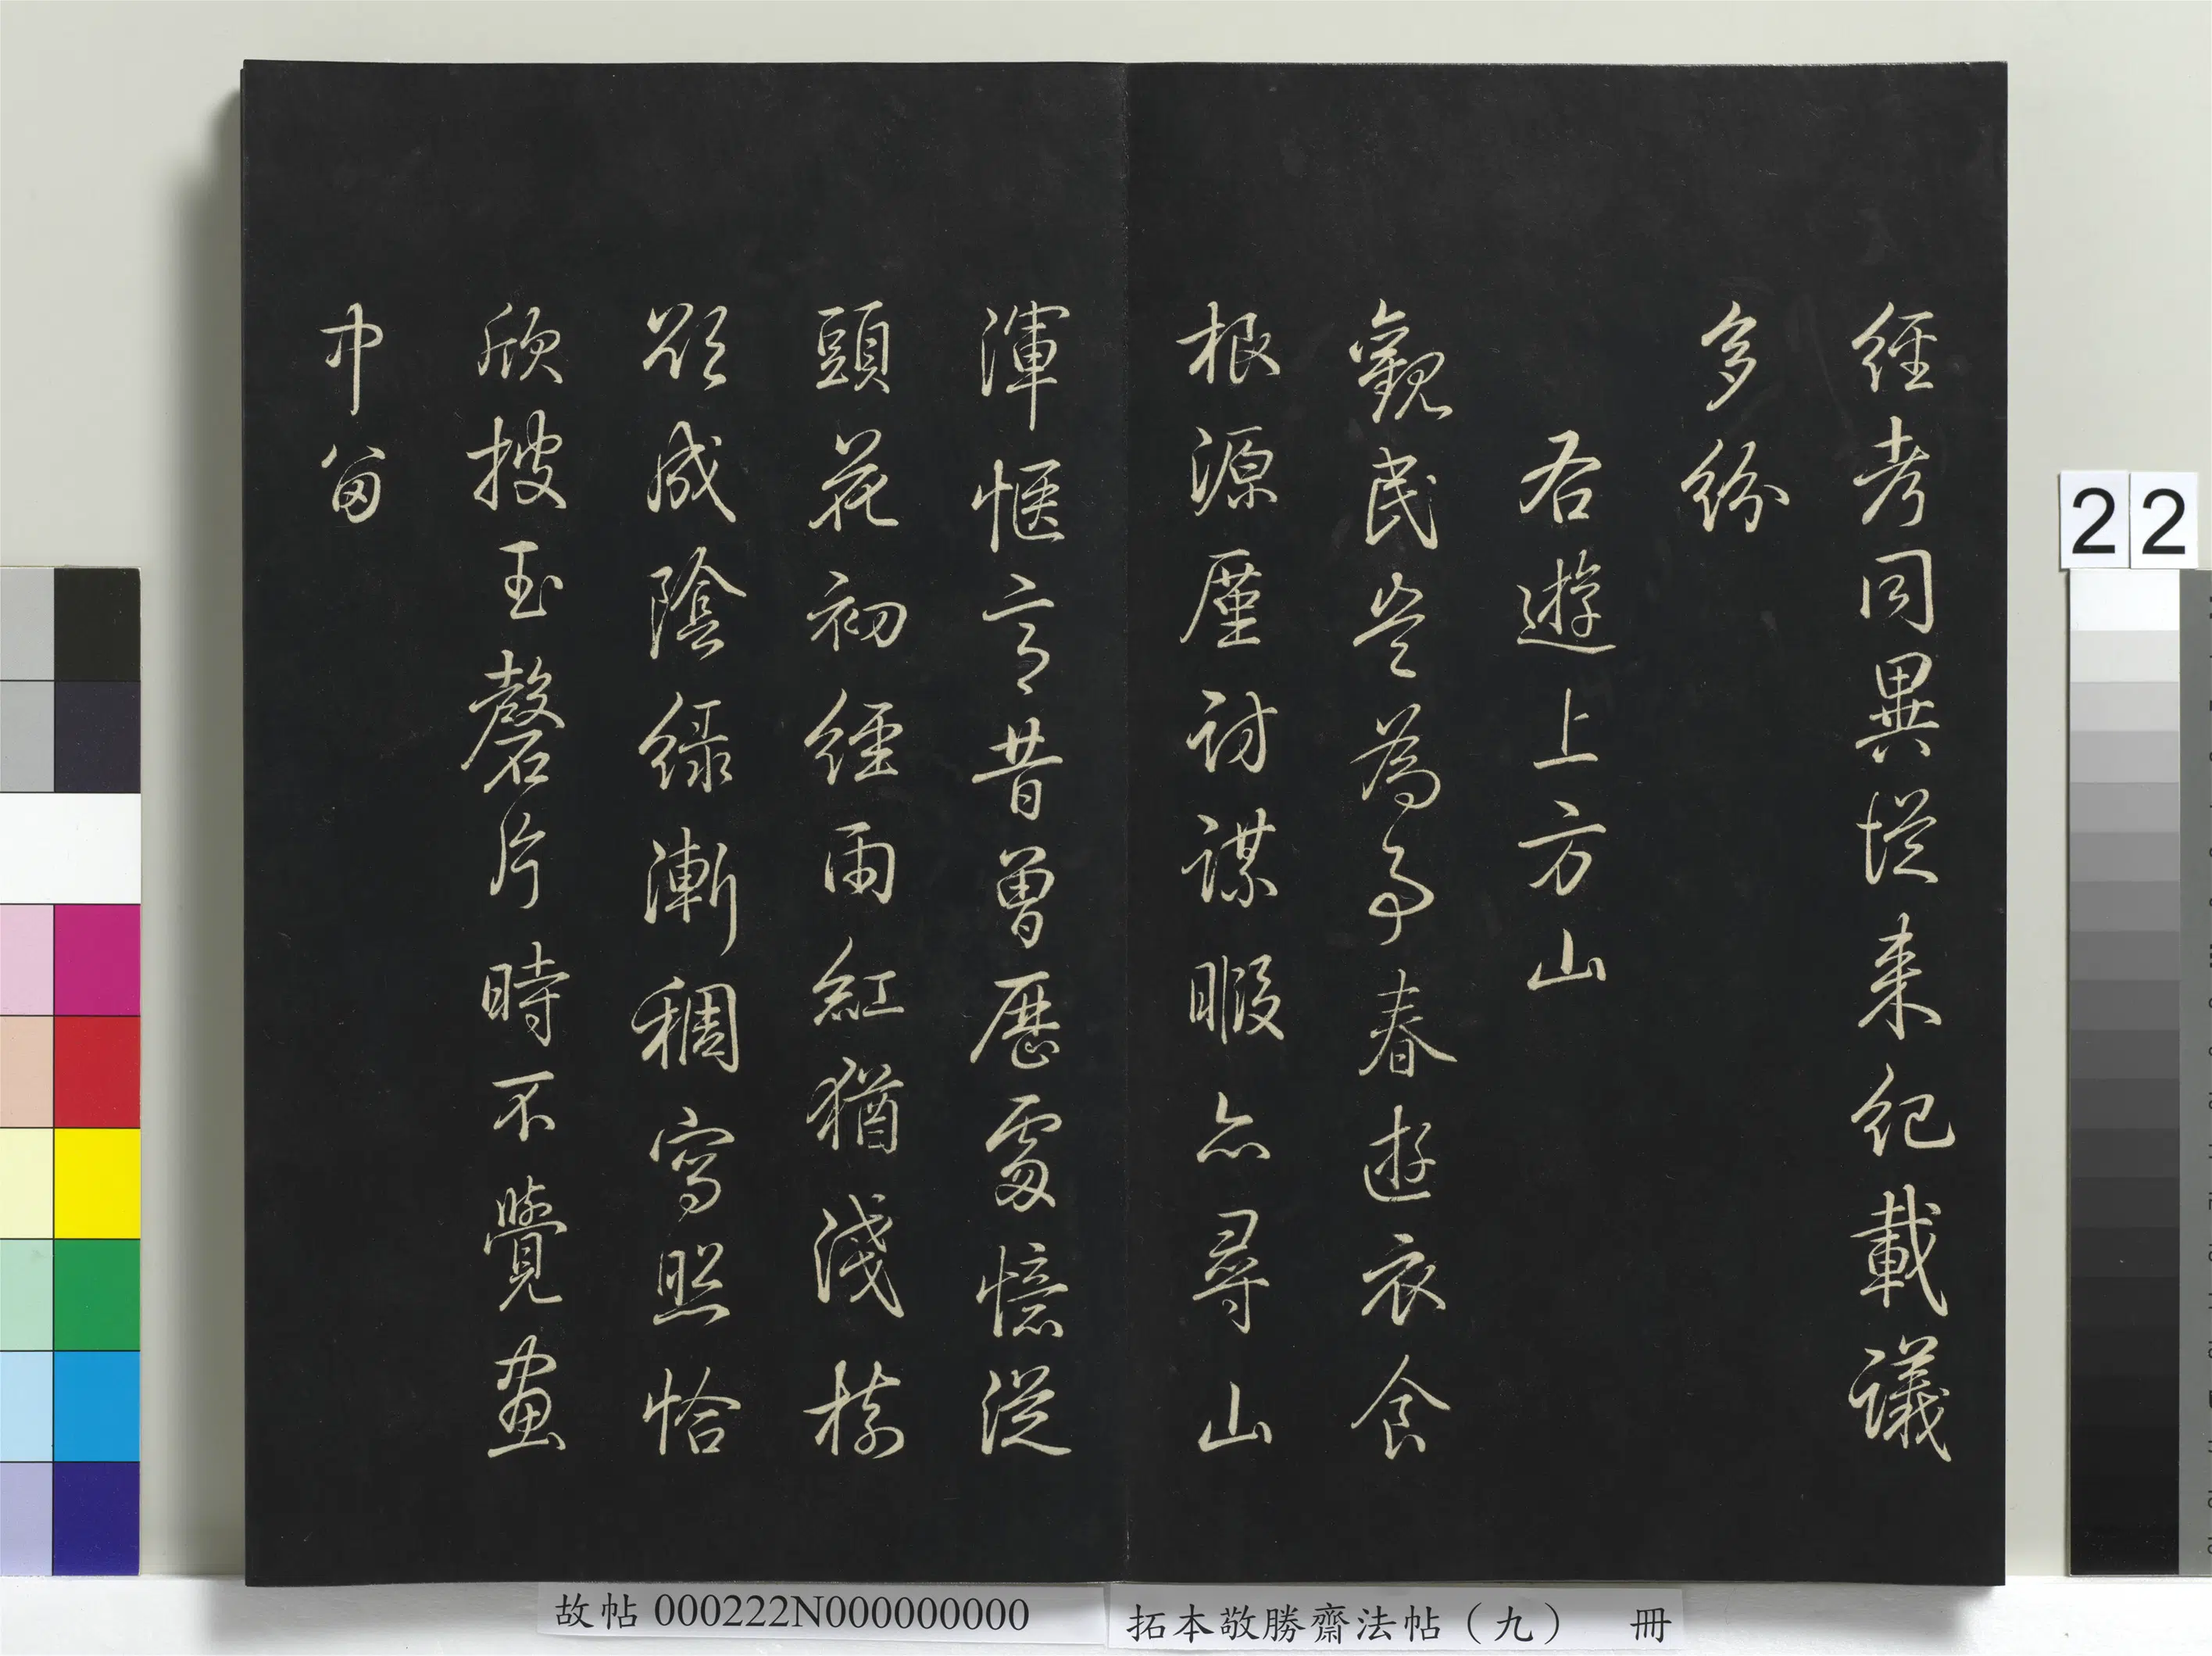 經考同異從来紀載議
多紛
右遊上方山
觀民豈為事春遊衣食
根源廑討謀暇亦尋山
渾愜意昔曾歷處憶從
頭花初經雨紅猶淺樹
欲成陰綠漸稠寫照恰
欣搜玉磬片時不覺畫
中留
22
故帖 000222N000000000
拓本敬勝齋法帖（九） 冊